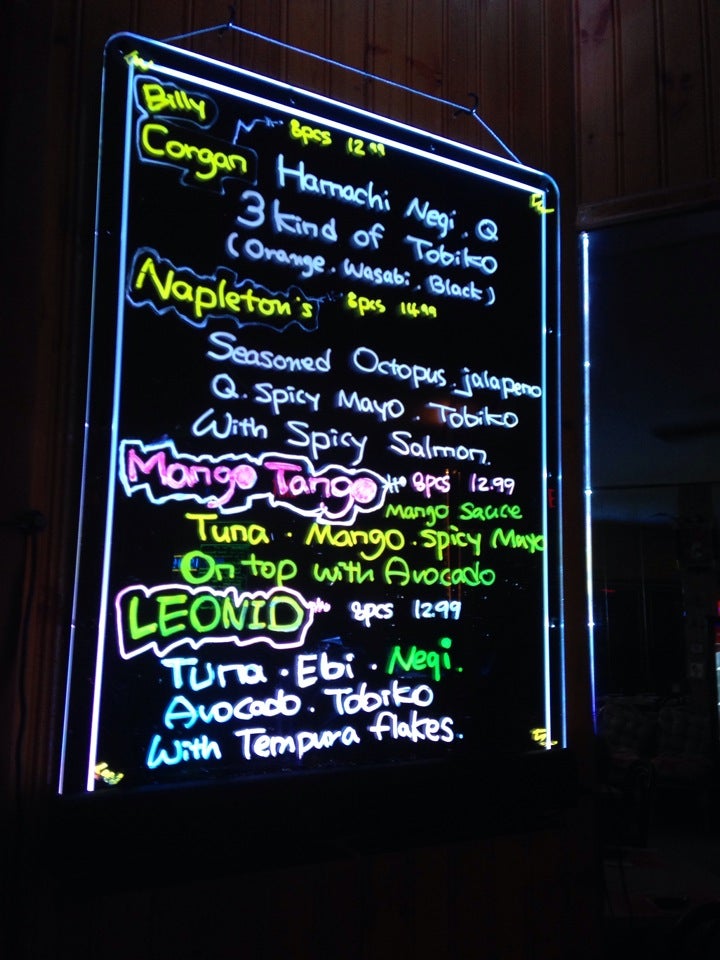 Billy
Corgan 8pcs 12.99
Hamachi Negi. Q
3 kind of Tobiko
(Orange. Wasabi. Black)
Napleton's 8pcs 14.99
Seasoned Octopus. jalapeno
Q. Spicy Mayo. Tobiko
With Spicy Salmon.
Mango Tango 8pcs 12.99
Mango Sauce
Tuna. Mango. Spicy Mayo
On top with Avocado
LEONID 8pcs 12.99
Tuna. Ebi. Negi.
Avocado. Tobiko
With Tempura flakes.